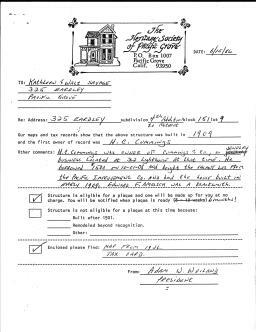 The
Heritage Society
of Pacific Grove
P.O. Box 1007
Pacific Grove
Calif. 93950
DATE:
TO: KATHLEEN & MIKE SAVAGE
325 EARDLEY
PACIFIC GROVE
Re: Address: 325 EARDLEY subdivision block lot
Our maps and tax records show that the above structure was built in 1909
and the first owner of record was H.C. CUMMINGS
Other comments: H.C. CUMMINGS WAS OWNER OF CUMMINGS & CO., A
BUSINESS LOCATED AT LIGHTHOUSE AT THAT TIME. HE
BORROWED AND BOUGHT THE FROM
THE PACIFIC IMPROVEMENT CO. AND HAD THE HOUSE BUILT IN
MARCH 1909. EDWARD F. WAS A BLACKSMITH.
Structure is eligible for a plaque and one will be made up for you at no
charge. You will be notified when plaque is ready
Structure is not eligible for a plaque at this time because:
Built after 1901.
Remodeled beyond recognition.
Other:
Enclosed please find: MAP FROM 1926
TAX CARD.
From: ADAM W. WEILAND
PRESIDENT